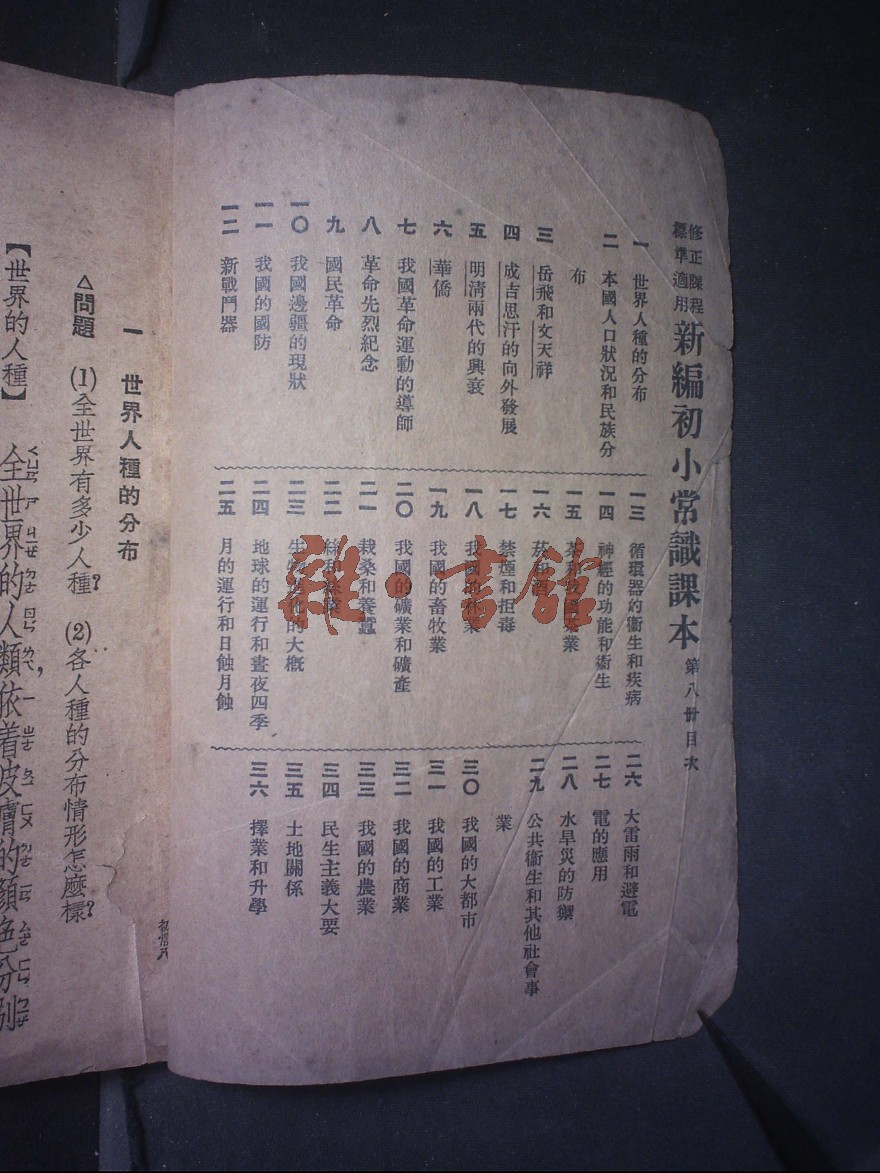 修正課程標準適用 新編初小常識課本 第八冊目次
一 世界人種的分布
二 本國人口狀況和民族分
布
三 岳飛和文天祥
四 成吉思汗的向外發展
五 明清兩代的興衰
六 華僑
七 我國革命運動的導師
八 革命先烈紀念
九 國民革命
一〇 我國邊疆的現狀
一一 我國的國防
一二 新戰鬥器
一三 循環器的衞生和疾病
一四 神經的功能和衞生
一五 茶和我國茶業
一六 菸和酒
一七 禁煙和拒毒
一八 我國的林業
一九 我國的畜牧業
二〇 我國的礦業和礦產
二一 栽桑和養蠶
二二 絲和絲業
二三 生物進化的大概
二四 地球的運行和晝夜四季
二五 月的運行和日蝕月蝕
二六 大雷雨和避電
二七 電的應用
二八 水旱災的防禦
二九 公共衞生和其他社會事
業
三〇 我國的大都市
三一 我國的工業
三二 我國的商業
三三 我國的農業
三四 民生主義大要
三五 土地關係
三六 擇業和升學
雜·書館
初常八
一 世界人種的分布
△問題 (1)全世界有多少人種? (2)各人種的分布情形怎麼樣?
【世界的人種】 全世界的人類，依着皮膚的顏色分別